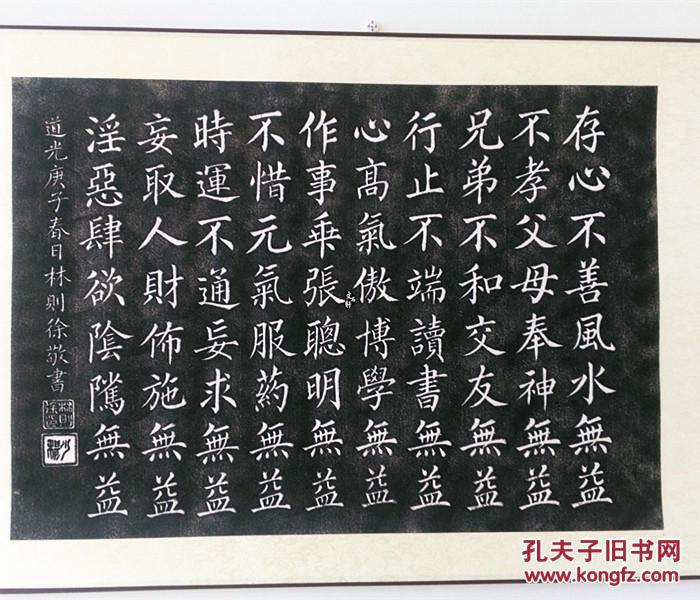 存心不善風水無益
不孝父母奉神無益
兄弟不和交友無益
行止不端讀書無益
心高氣傲博學無益
作事乖張聰明無益
不惜元氣服藥無益
時運不通妄求無益
妄取人財佈施無益
淫惡肆欲陰隲無益
道光庚子春日林則徐敬書
孔夫子旧书网
www.kongfz.com